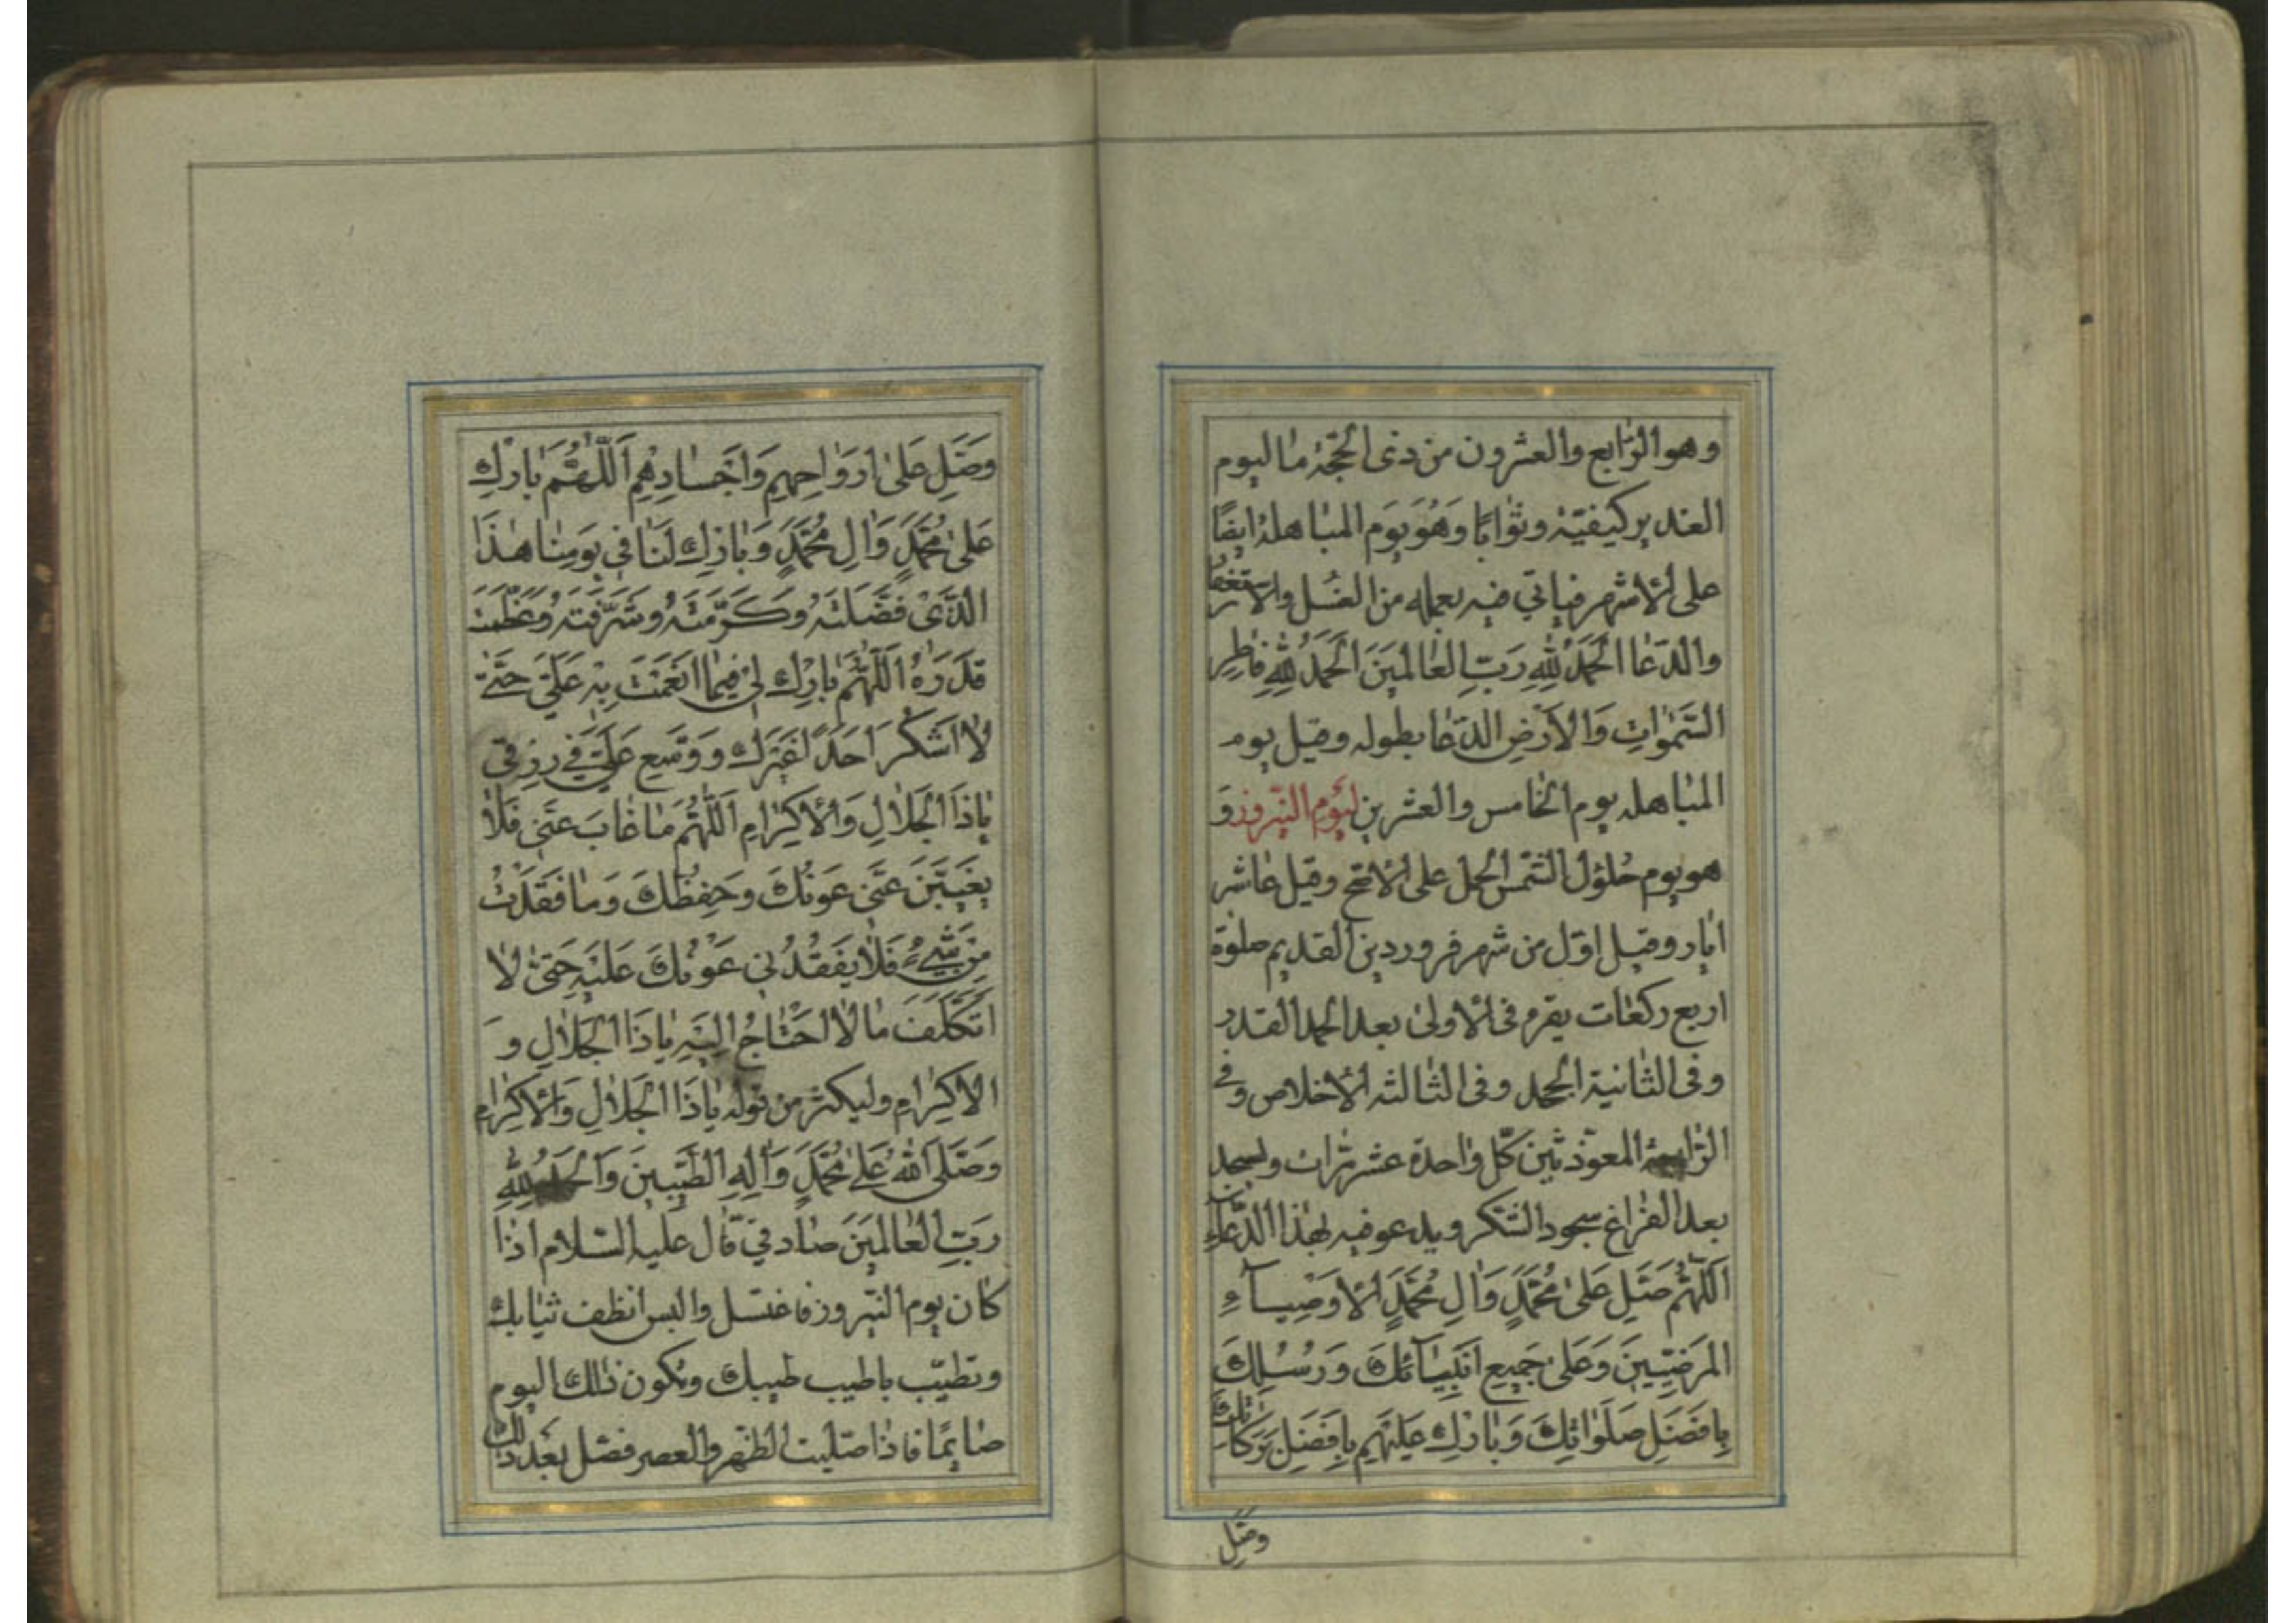 وهو الرّابع والعشرون من ذى الحجّة مٰا ليوم
الغدير كيفيّة وثوٰابًا وَهُوَ يَوم المبٰاهلة ايضًا
على الأشهر فياتي فيه بعمله من الغُسل والاستغفار
والدّعٰا الحَمدُ لِلّٰهِ رَبِّ العٰالَمينَ الحَمدُ لِلّٰهِ فٰاطِرِ
السَّمٰوٰاتِ وَالاَرْضِ الدّعٰا بطوله وقيل يوم
المبٰاهله يوم الخٰامس والعشرين ليَوم النّيروز وَ
هو يوم حُلوُل الشّمس الحمل على الأصَحّ وقيل عٰاشر
ايّٰار وقيل اوّل من شهر فروردين القديم صلوٰة
اربع ركعٰات يقرء فى الأولىٰ بعد الحمد القدر
وفى الثّٰانية الجحد وفى الثّٰالثه الأخلاص وفى
الرّٰابعة المعوّذتين كلّ وٰاحدة عشر مرّٰات ويسجد
بعد الفرٰاغ سجود الشّكر ويدعو فيه بهٰذا الدّعآء
اَللّٰهُمَّ صَلِّ عَلىٰ مُحَمَّدٍ وَاٰلِ مُحَمَّدٍ الأَوصِيآءِ
المَرضِيّينَ وَعَلىٰ جَميعِ اَنبِيٰآئكَ وَرُسُلِكَ
بِاَفضَلِ صَلَوٰاتِكَ وَبٰارِك عَلَيهِم بِاَفضَلِ بَرَكٰاتِكَ
وصَلِّ
وصَلِّ عَلىٰ اَروٰاحِهِم وَاَجسٰادِهِم اَللّٰهُمَّ بٰارِك
عَلىٰ مُحَمَّدٍ وَاٰلِ مُحَمَّدٍ وَبٰارِك لَنٰا في يَومِنٰا هٰذَا
الَّذى فَضَّلتَهُ وَكَرَّمتَهُ وَشَرَّفتَهُ وَعَظَّمتَ
قَدرَهُ اَللّٰهُمَّ بٰارِك لى فيمٰا اَنعَمتَ بِه عَلَيَّ حَتّىٰ
لاٰ اَشكُرَ اَحَدًا غَيرَكَ وَوَسِّع عَلَيَّ في رِزقى
يٰا ذَا الجَلاٰلِ وَالأكرٰامِ اَللّٰهُمَّ مٰا غٰابَ عَنّى فَلاٰ
يَغيبَنَّ عَنّى عَونُكَ وَحِفظُكَ وَمٰا فَقَدتُ
مِن شَيءٍ فَلاٰ يَفقُدُنى عَونُكَ عَلَيهِ حَتّىٰ لاٰ
اَتَكَلَّفَ مٰا لاٰ اَحتٰاجُ اِلَيهِ يٰا ذَا الجَلاٰلِ وَ
الاكرٰامِ وليكثر من قوله يٰا ذَا الجَلاٰلِ وَالأكرٰام
وَصَلَّى اللهُ عَلىٰ مُحَمَّدٍ وَاٰلِهِ الطَّيِّبينَ وَالحَمدُ لِلّٰهِ
رَبِّ العٰالَمينَ صٰادقي قٰال عليه السّلام اذٰا
كٰان يوم النّيروز فاغتسل والبس انظف ثيٰابك
وتطيّب باطيب طيبك وتكون ذٰلك اليوم
صٰايمًا فاذٰا صلّيت الظّهر والعصر فصّل بَعد ذلك